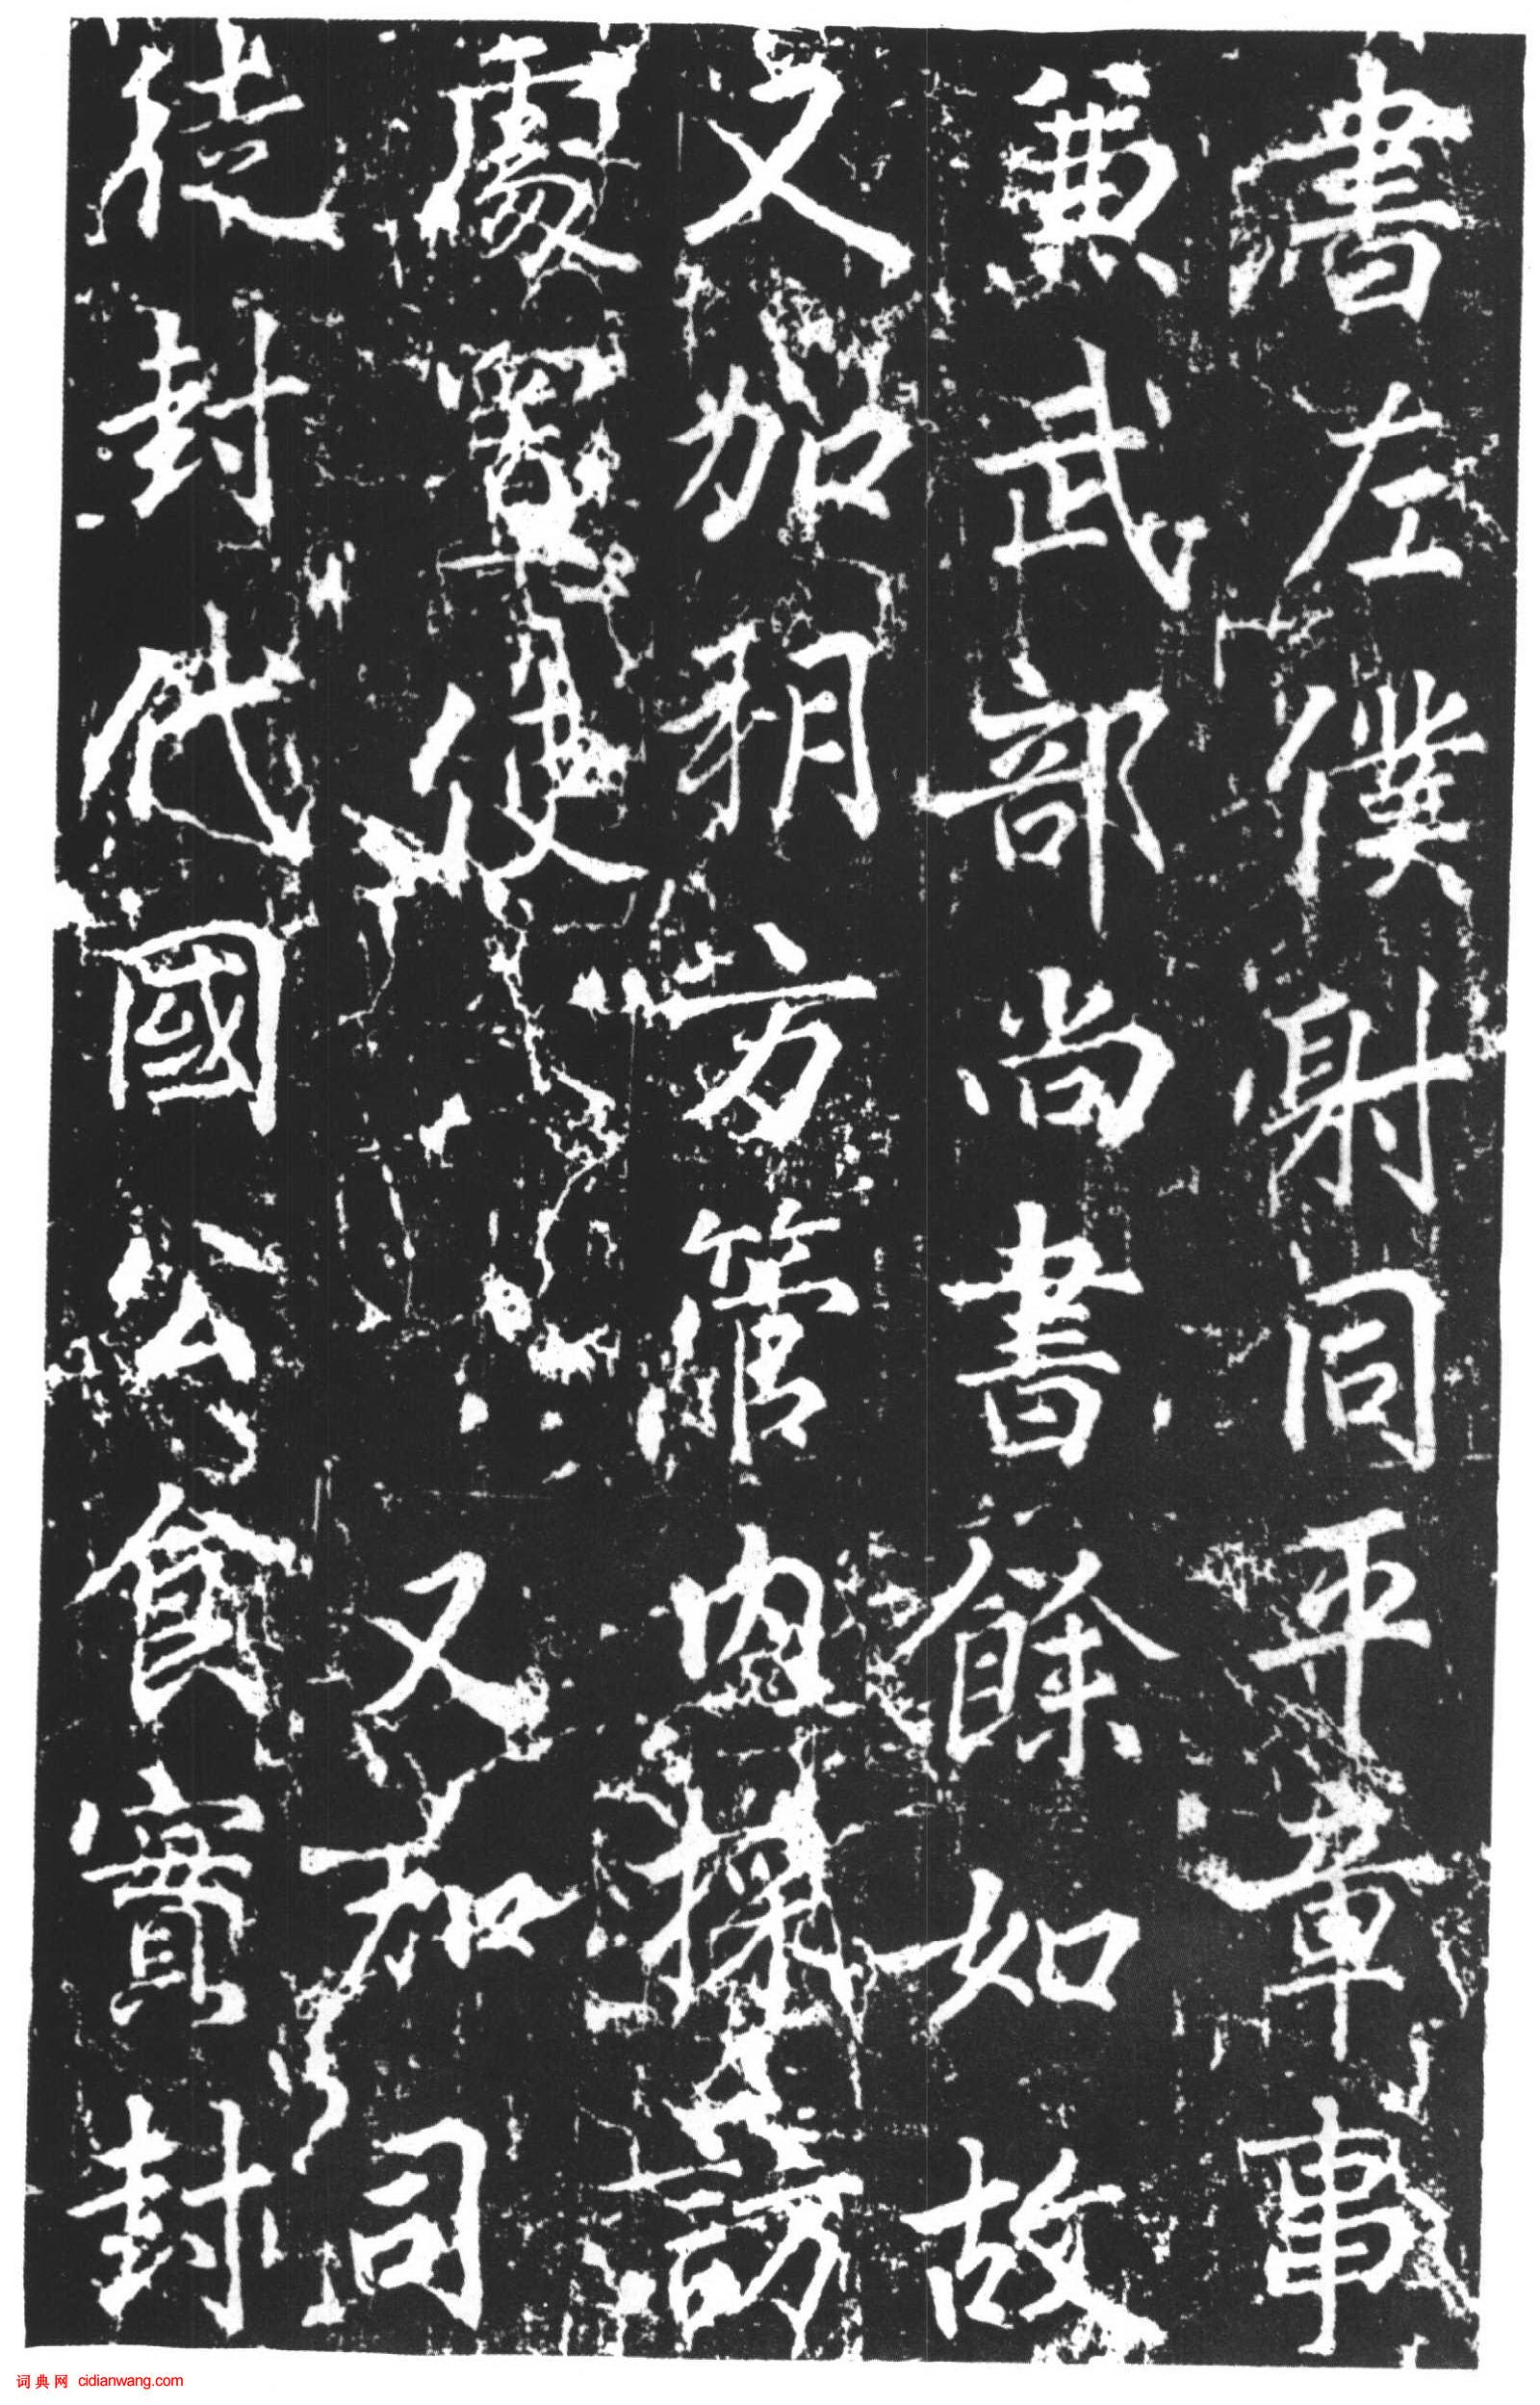 書左僕射同平章事
兼武部尚書餘如故
又加朔方管內採訪
處置使又加司
徒封代國公食實封
词典网 cidianwang.com